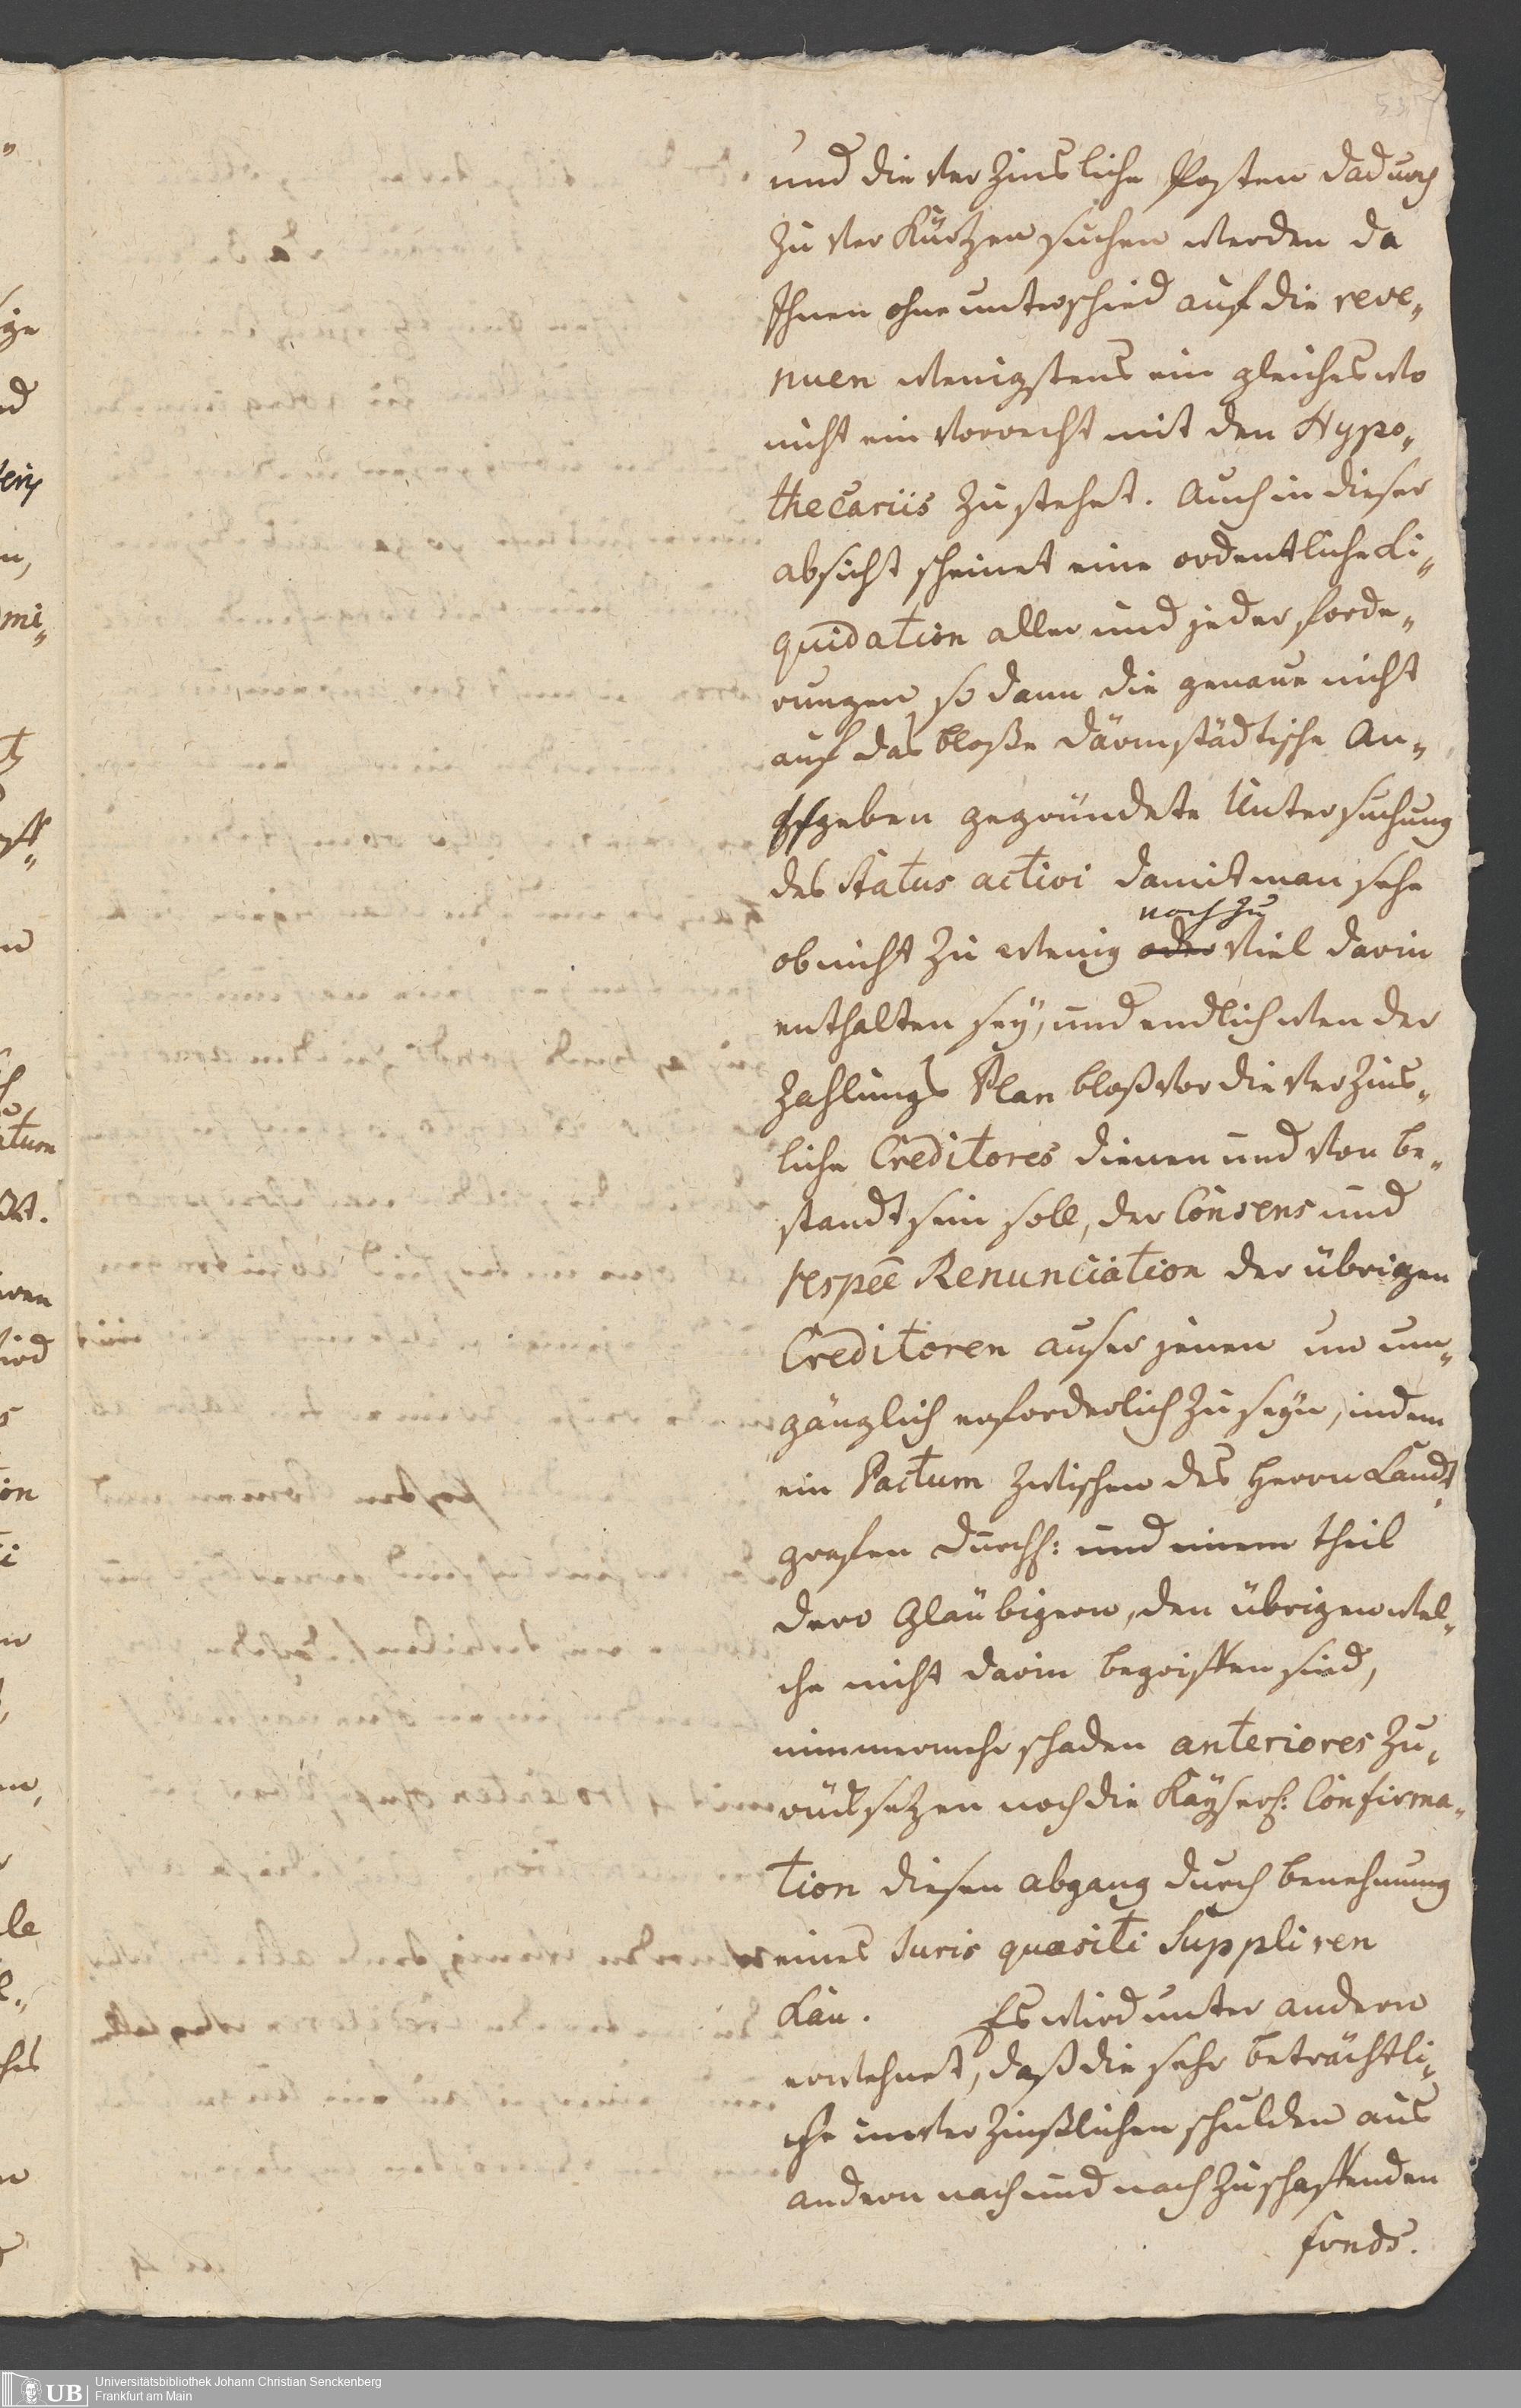 und die verzinsliche Posten dadurch
zu verkürtzen suchen werden da
Ihnen ohne unterschied auf die reve„
nuen wenigstens ein gleiches wo
nicht ein Vorrecht mit den Hypo„
thecariis zustehet. Auch in dieser
absicht scheinet eine ordentliche Li„
quidation aller und jeder forde„
rungen so dann die genaue nicht
auf das bloße därmstädtische An„
geben gegründete Untersuchung
des Status activi damit man sehe
noch zu
ob nicht zu wenig oder viel darin
enthalten seÿ, und endlich wen der
Zahlungs Plan bloß vor die verzins„
liche Creditores dienen und von be„
standt sein soll, der Consens und
respēe Renunciation der übrigen
Creditoren auser jenen un um„
gänglich erforderlich zu seyn, indem
ein Pactum zwischen des Herrn Landt„
grafen Durchl: und einem theil
dero Gläubigern, den übrigen wel„
che nicht darin begriffen sind,
nimmermehr schaden anteriores zu„
rücksetzen noch die Kaÿserl: Confirma„
tion diesen abgang durch benehmung
eines Juris quæsiti Suppliren
kan. Es wird unter andern
erwehnet, daß die sehr beträchtli„
che unverzinßlichen schulden aus
andern nach und nach zu schaffenden
fonds.
Universitätsbibliothek Johann Christian Senckenberg
Frankfurt am Main